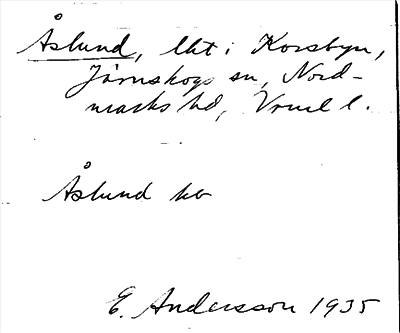 Åslund, lht i Korsbyn,
Järnskogs sn, Nord-
marks hd, Vrml l.
Åslund hb
E. Andersson 1935